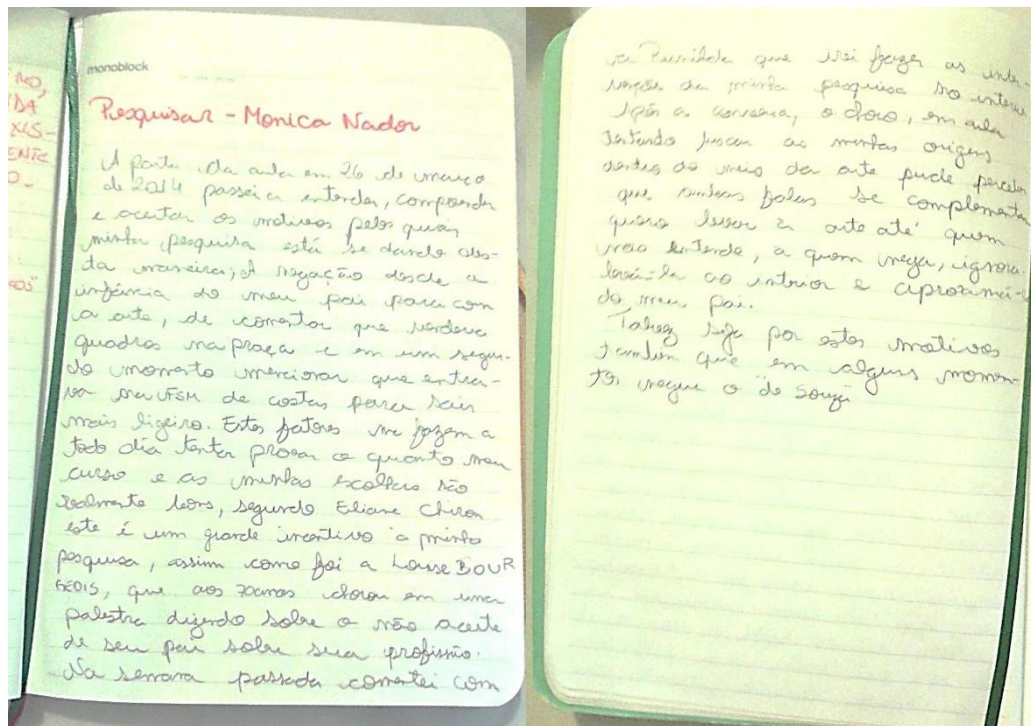 NO,
DA
XIS-
ENTE
O-
monoblock
Pesquisar - Monica Nador
A partir da aula em 26 de março
de 2014 passei a entender, compreender
e aceitar os motivos pelos quais
minha pesquisa está se dando des-
ta maneira; A negação desde a
infância do meu pai para com
a arte, de comentar que vendeva
quadros na praça e em um segun-
do momento mencionar que entra-
va na UFSM de costas para sair
mais ligeiro. Estes fatores me fazem a
todo dia tentar provar o quanto meu
curso e as minhas escolhas são
realmente bons, segundo Eliane Chiron
este é um grande incentivo a minha
pesquisa, assim como foi a Louise BOUR
GEOIS, que aos 70anos chorou em uma
palestra dizendo sobre o não aceite
de seu pai sobre sua profissão.
Na semana passada comentei com
a que irei fazer as inter-
venções da minha pesquisa no interior
Após a conversa, o choro, em aula
tentando buscar as minhas origens
dentro do meio da arte pude perceber
que ambas falas se complementam
quero levar a arte até quem
não entende, a quem nega, ignora.
levá-la ao interior e aproximá-
do meu pai.
Talvez seja por estes motivos
também que em alguns momen-
tos negue o "de Souza"